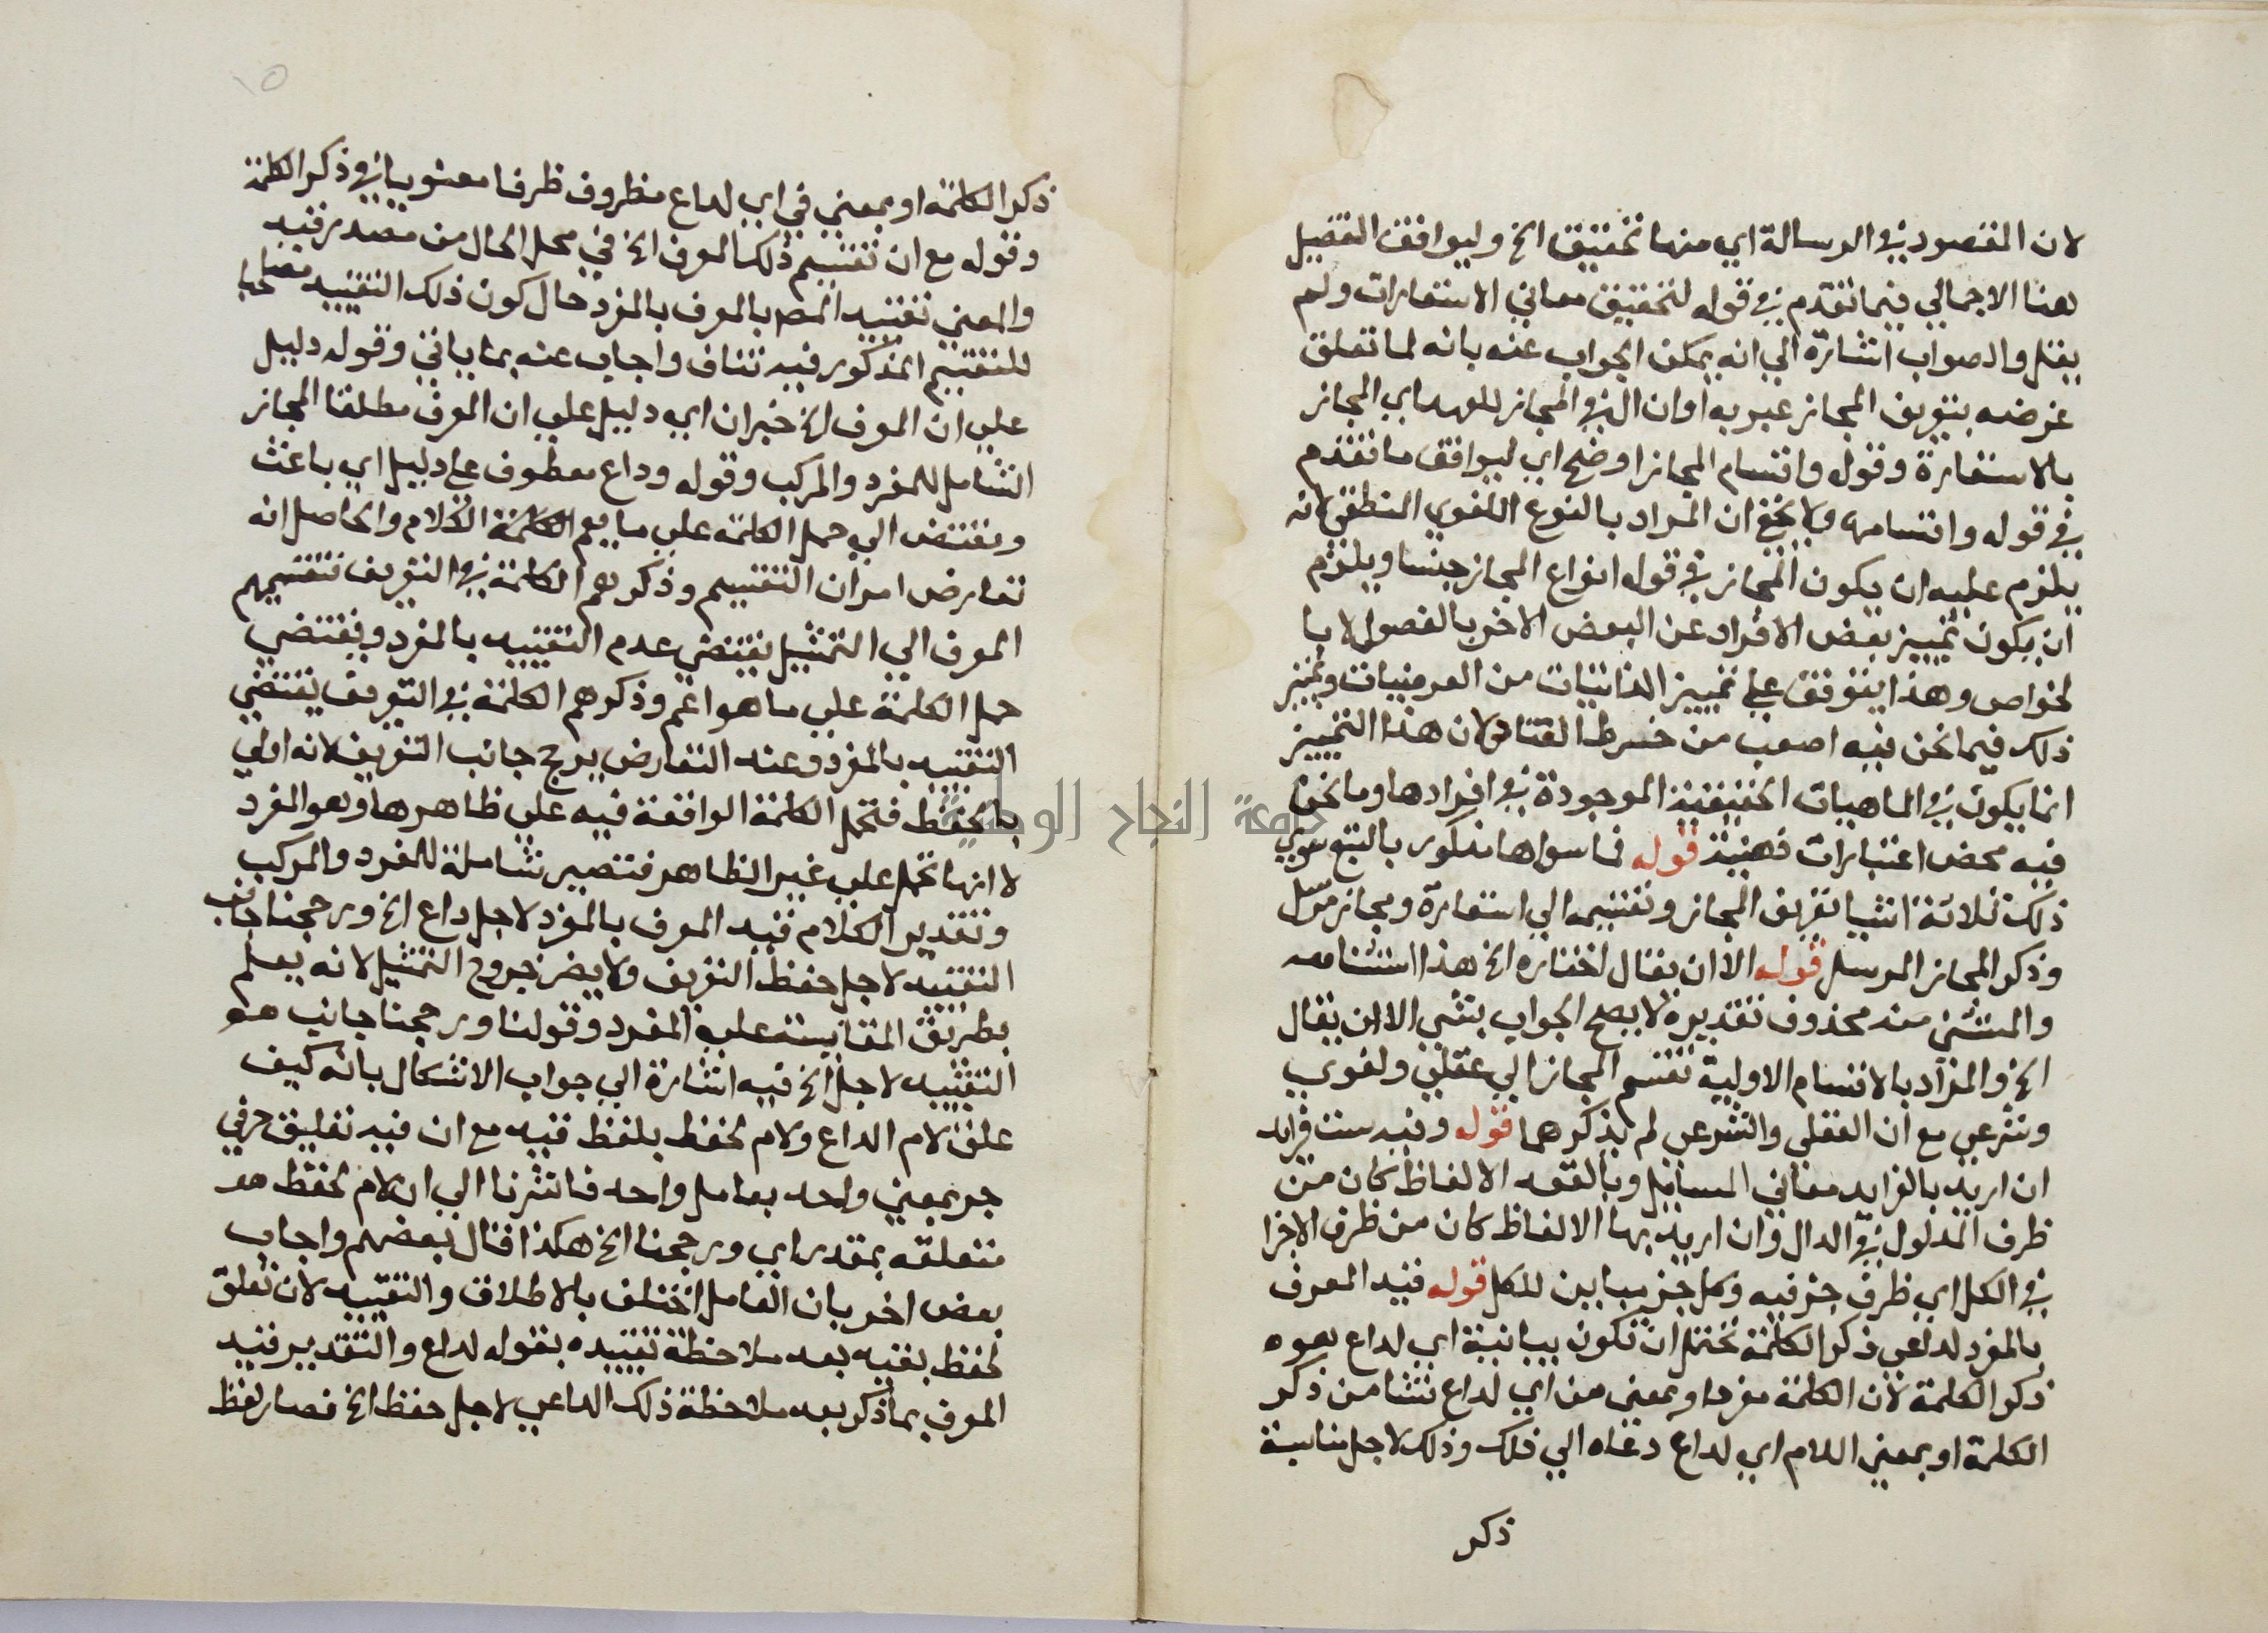 لان المقصود في الرسالة اي منها تحقيق الخ وليوافق التفصيل
هنا الاجمالي فيما تقدم في قوله لتحقيق معاني الاستعارات ولم
يقل والصواب اشارة الي انه يمكن الجواب عنه بانه لما تعلق
غرضه بتعريف المجاز عبر به اوان ال في المجاز للعهد اي المجاز
بالاستعارة وقوله واقسام المجاز اوضح اي ليوافق ما تقدم
في قوله واقسامها ولا يخفى ان المراد بالنوع اللغوي المنطقي لانه
يلزم عليه ان يكون المجاز في قوله انواع المجاز جنسا ويلزم
ان يكون تمييز بعض الافراد عن البعض الاخر بالفصول لا با
لخواص وهذا يتوقف على تمييز الذاتيات من العرضيات وتمييز
ذلك فيما نحن فيه اصعب من خرط القتاد ولان هذا التمييز
انما يكون في الماهيات الحقيقية الموجودة في افرادها وما نحن
فيه محض اعتبارات فهنية قوله فما سواها مذكور بالتبع سوي
ذلك ثلاثة اشيا تعريف المجاز وتقسيمه الي استعارة ومجاز مرسل
وذكر المجاز المرسل قوله الا ان يقال اختاره الخ هذا استثنا معه
والمستثني منه محذوف تقديره لا يصح الجواب بشي الا ان يقال
الخ والمراد بالاقسام الاولية تقسم المجاز الي عقلي ولغوي
وشرعي مع ان العقلي والشرعي لم يذكرهما قوله وفيه ست فرايد
ان اريد بالفرايد معاني المسايل وبالعقد الالفاظ كان من
ظرف المدلول في الدال وان اريد بها الالفاظ كان من ظرف الاجزا
في الكل اي ظرف جز فيه وكل جز يباين للكل قوله قيد المعرف
بالمفرد لداعي ذكر الكلمة تحتمل ان تكون بيانية اي لداع هوه
ذكر الكلمة لان الكلمة مفرد او بمعني من اي لداع نشا من ذكر
الكلمة او بمعني اللام اي لداع دعاه الي ذلك وذلك لاجل مناسبة
ذكر
١٥
ذكر الكلمة او بمعني في اي لداع مظروف ظرفا معنويا في ذكر الكلمة
وقوله مع ان تقسيم ذلك المعرف الخ في محل الحال من مصدر قيد
والمعني تقييد المص بالمعرف بالمفرد حال كون ذلك التقييد مصاحبا
للتقسيم المذكور فيه تناف واجاب عنه بما ياتي وقوله دليل
علي ان المعرف الخ خبر ان اي دليل علي ان المعرف مطلقا المجاز
الشامل للمفرد والمركب وقوله وداع معطوف على دليل اي باعث
ومقتض الي حمل الكلمة علي ما يعم الكلمة الكلام والحاصل انه
تعارض امران التقسيم وذكرهم الكلمة في التعريف فتقسيمهم
المعرف الي التمثيل يقتضي عدم التقييد بالمفرد ويقتضي
حمل الكلمة علي ما هو اعم وذكرهم الكلمة في التعريف يقتضي
التقييد بالمفرد وعند التعارض يرجح جانب التعريف لانه اولي
بالحفظ فتحمل الكلمة الواقعة فيه علي ظاهرها وهو المفرد
لا انها تحمل علي غير الظاهر فتصير شاملة للمفرد والمركب
وتقدير الكلام قيد المعرف بالمفرد لاجل داع الخ ورجحنا جانب
التقييد لاجل حفظ التعريف ولا يضر خروج التمثيل لانه يعلم
بطريق المقايسة علي المفرد وقولنا ورجحنا جانب هو
التقييد لاجل الخ فيه اشارة الي جواب الاشكال بانه كيف
علق لام الداع ولام لحفظ بلفظ قيد مع ان فيه تعليق حرفي
جر بمعني واحد بعامل واحد فاشرنا الي ان لام لحفظ هو
متعلقه بمقدر اي ورجحنا الخ هكذا قال بعضهم واجاب
بعض اخر بان العامل اختلف بالاطلاق والتقييد لان تعلق
لحفظ بقيد بعد ملاحظة تقييده بقوله لداع والتقدير قيد
المعرف بما ذكر بعد ملاحظة ذلك الداعي لاجل حفظ الخ فصار لفظ
جامعة النجاح الوطنية